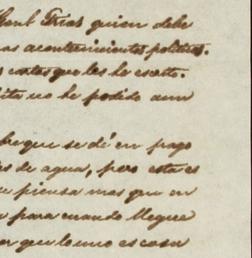 Genl Frias quien debe
as acontecimientos politicos.
cartas que les he escrito.
ita no he podido aun
be que se dé en pago
es de agua, pero esta es
e piensa mas que en
para cuando llegue
or que lo uno es cosa